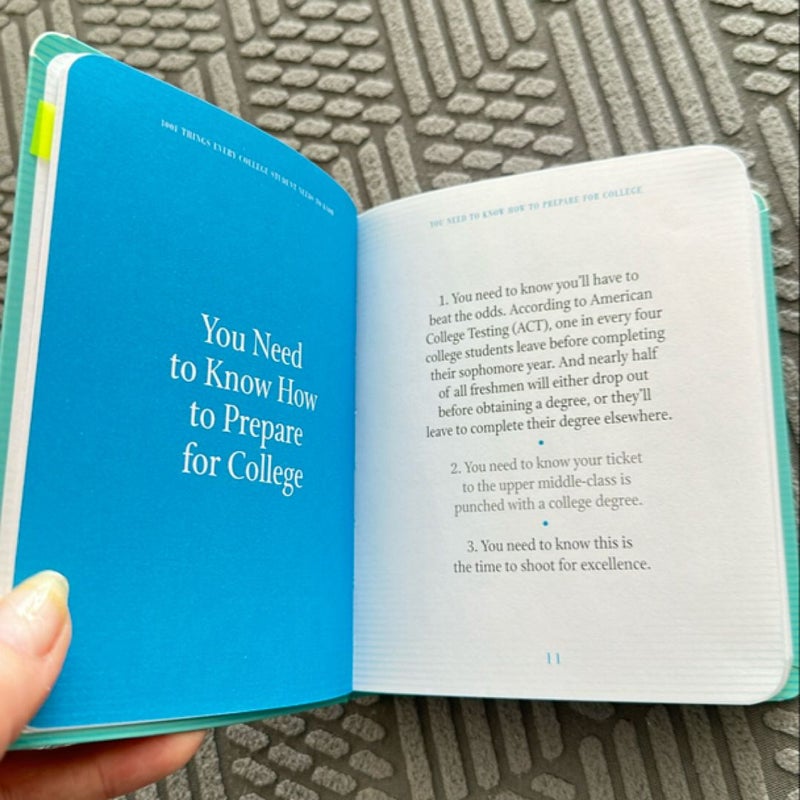 1001 THINGS EVERY COLLEGE STUDENT NEEDS TO KNOW
You Need
to Know How
to Prepare
for College
YOU NEED TO KNOW HOW TO PREPARE FOR COLLEGE
1. You need to know you'll have to
beat the odds. According to American
College Testing (ACT), one in every four
college students leave before completing
their sophomore year. And nearly half
of all freshmen will either drop out
before obtaining a degree, or they'll
leave to complete their degree elsewhere.
2. You need to know your ticket
to the upper middle-class is
punched with a college degree.
3. You need to know this is
the time to shoot for excellence.
11